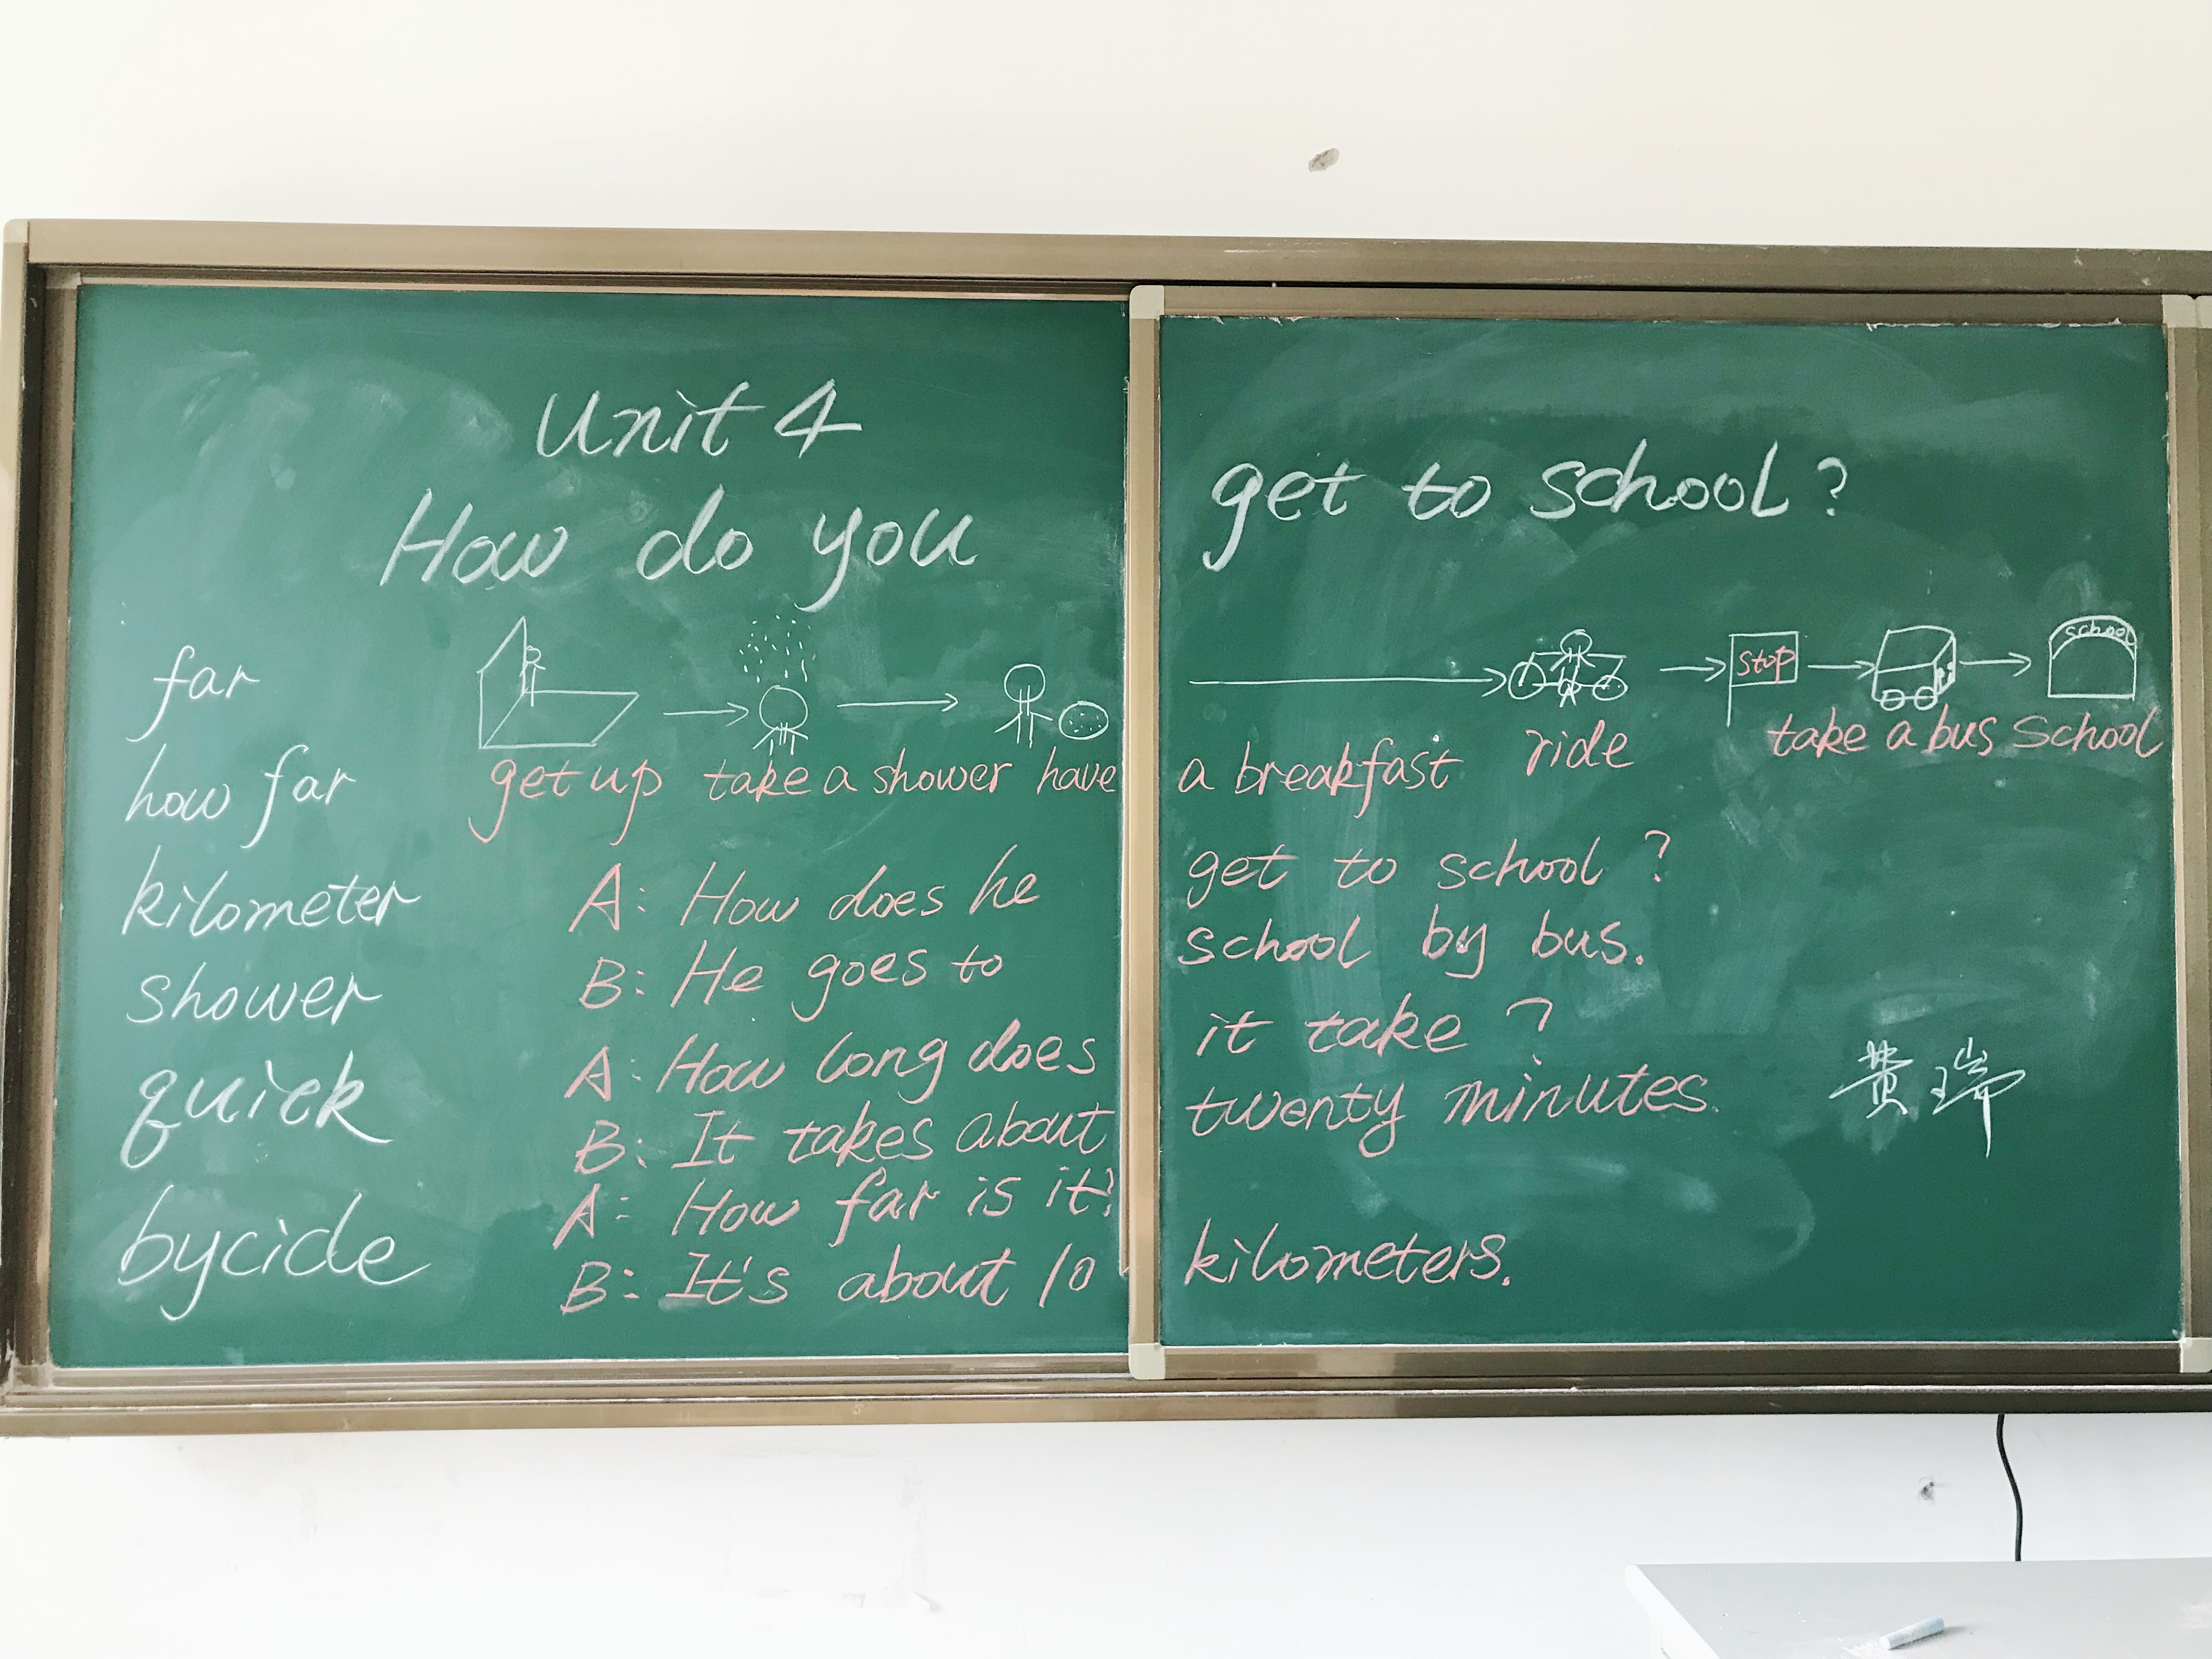 Unit 4
How do you get to school?
far
how far
kilometer
shower
quick
bycicle
stop
school
get up take a shower have a breakfast ride take a bus School
A: How does he get to school?
B: He goes to school by bus.
A: How long does it take?
B: It takes about twenty minutes.
A: How far is it?
B: It's about 10 kilometers.
黄瑞